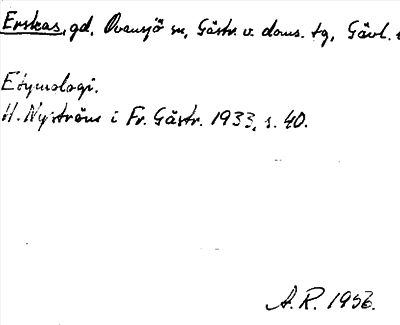 Erskas, gd, Ovansjö sn, Gästr. v. doms. tg, Gävl.
Etymologi.
H. Nyström i Fr. Gästr. 1933, s. 40.
A.R. 1956.